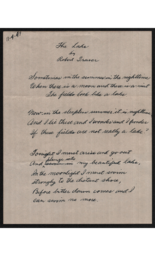 The Lake
by
Robert Duncan
Sometimes in the summer in the nighttime
When there is a moon and there is a mist
The fields look like a lake
Now in the sleepless summer, at in nighttime,
And I lie there and I wonder and I ponder
If those fields are not really a lake
Tonight I must arise and go out
And plunge into my beautiful Lake,
In the moonlight I must swim
Strongly to the distant shore,
Before better dawn comes and I
can swim no more.